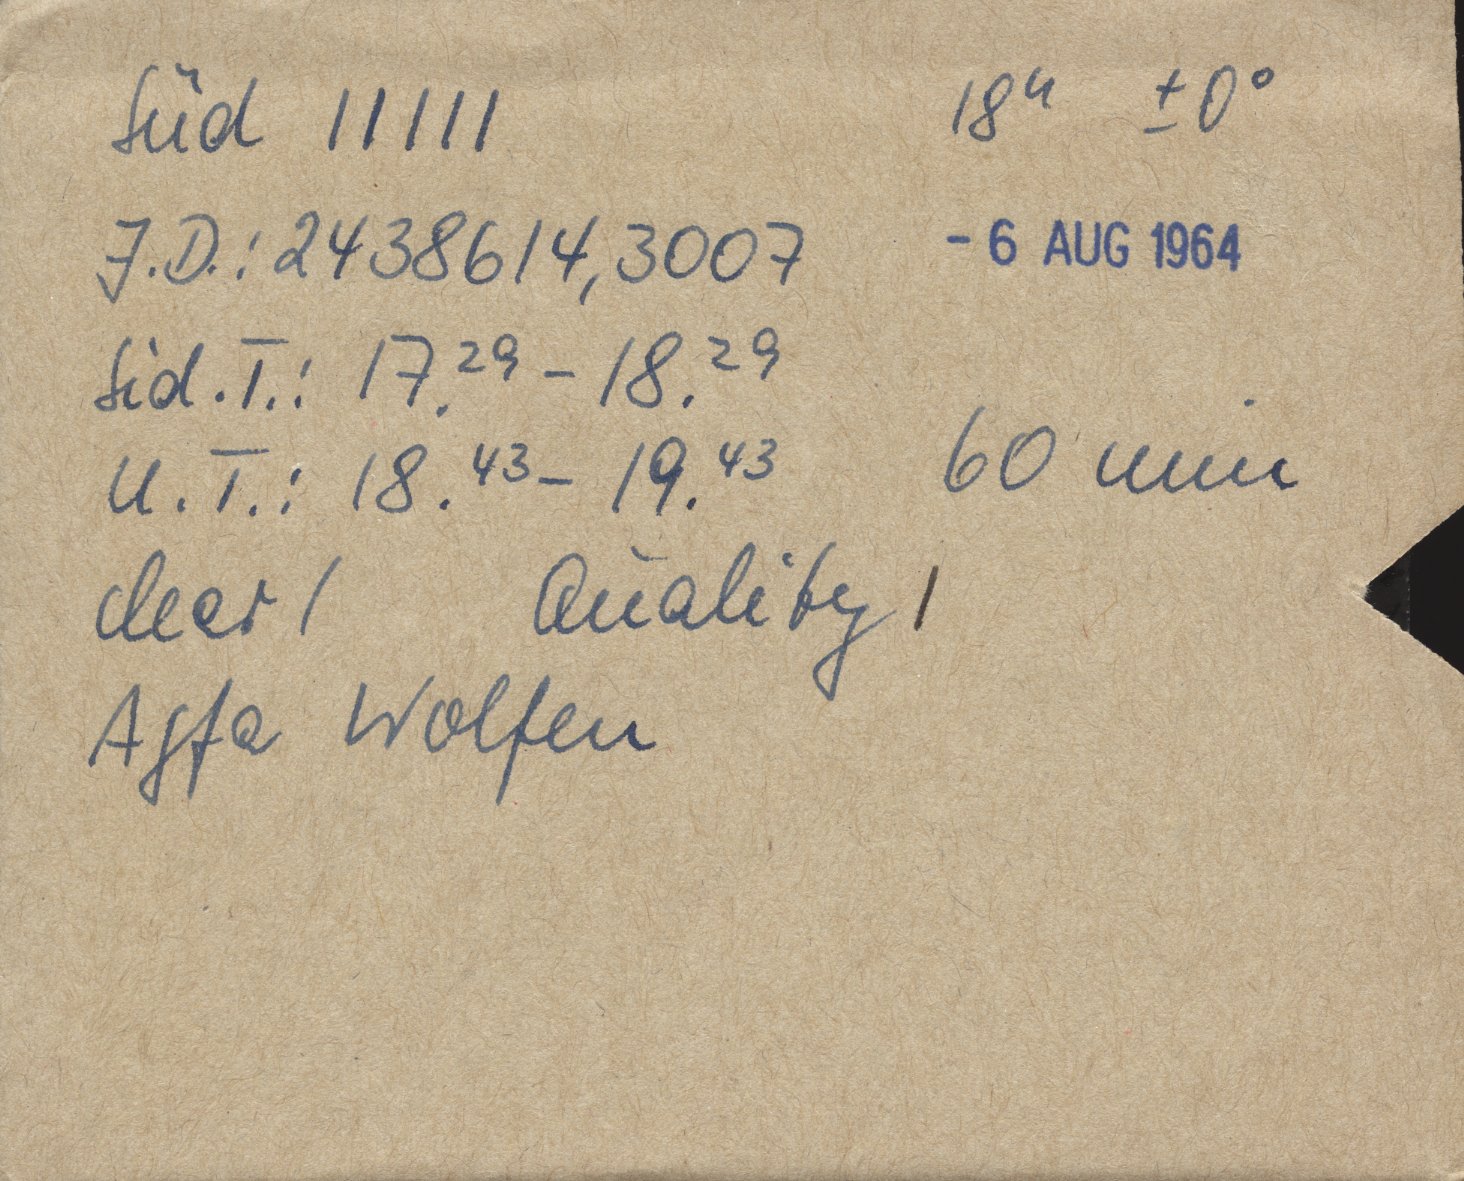 Süd 11111 18ʰ ±0°
J.D.: 2438614,3007 - 6 AUG 1964
Sid.T.: 17.²⁹ - 18.²⁹
U.T.: 18.⁴³ - 19.⁴³ 60 min
clear 1 Quality 1
Agfa Wolfen